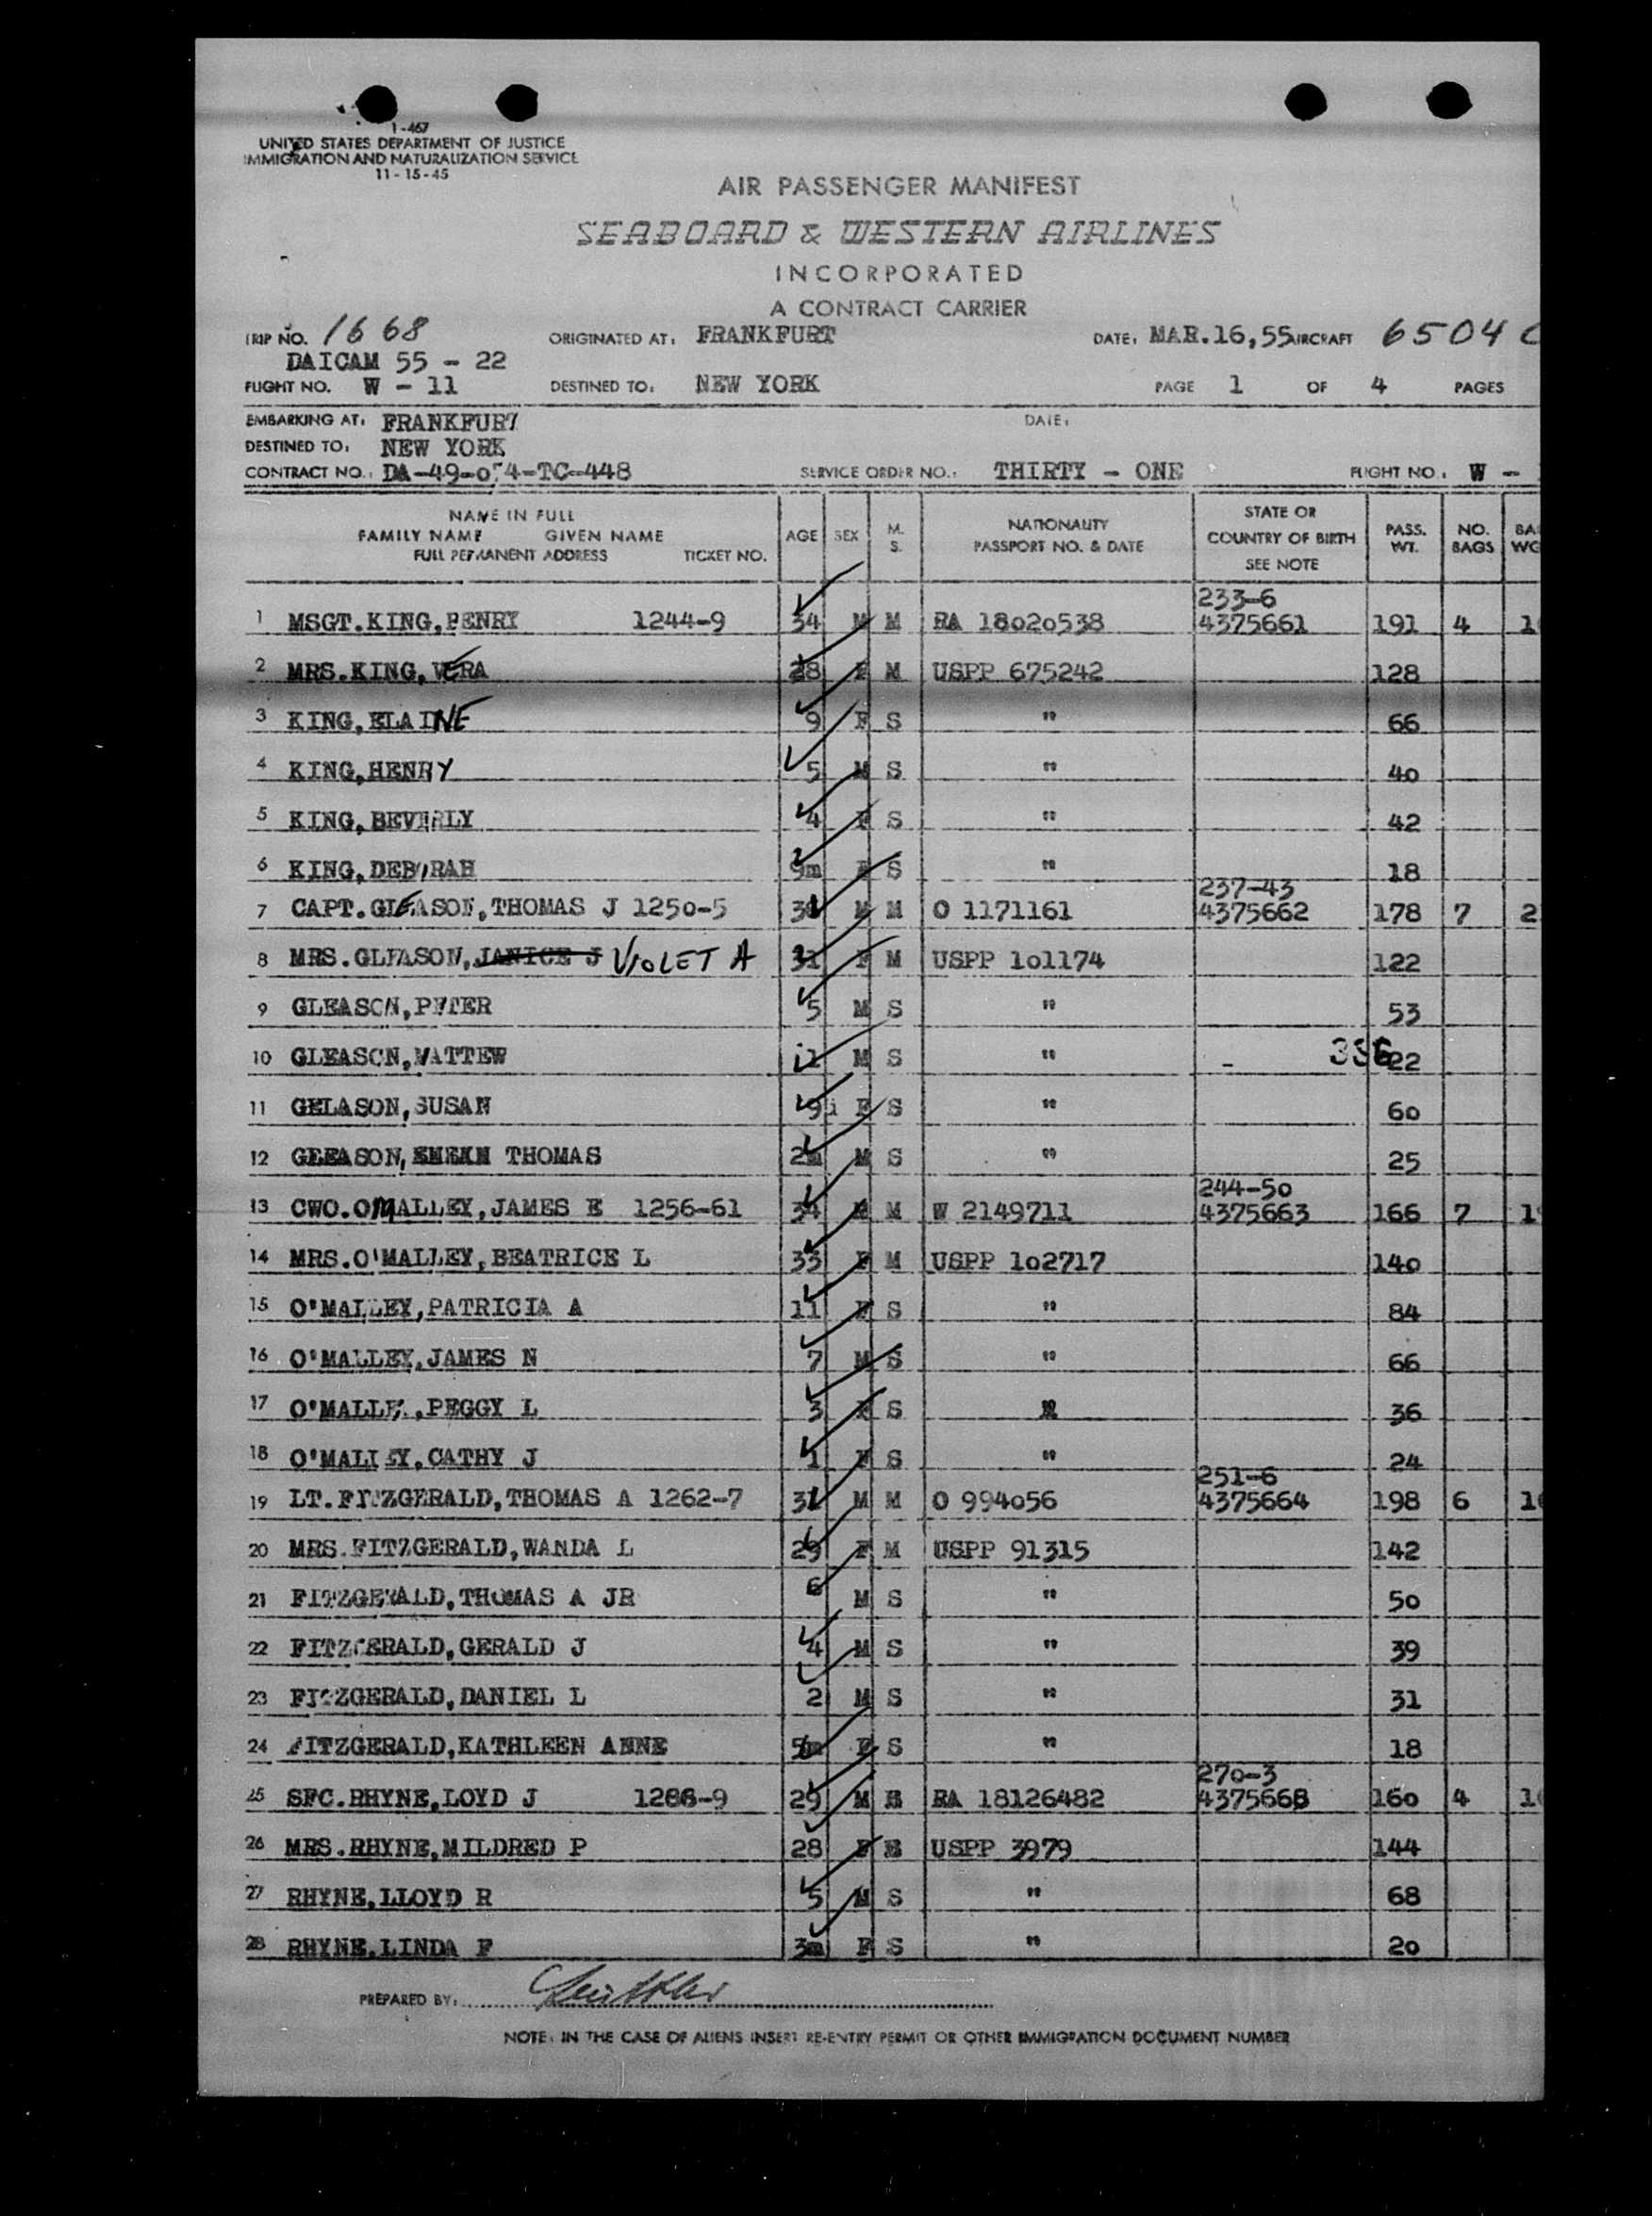 I-467
UNITED STATES DEPARTMENT OF JUSTICE
IMMIGRATION AND NATURALIZATION SERVICE
11-15-45
AIR PASSENGER MANIFEST
SEABOARD & WESTERN AIRLINES
INCORPORATED
A CONTRACT CARRIER
TRIP NO. 1668 ORIGINATED AT: FRANKFURT DATE: MAR.16,55 AIRCRAFT 6504 C
DAICAM 55 - 22
FLIGHT NO. W - 11 DESTINED TO: NEW YORK PAGE 1 OF 4 PAGES
EMBARKING AT: FRANKFURT DATE:
DESTINED TO: NEW YORK
CONTRACT NO.: DA-49-o54-TC-448 SERVICE ORDER NO.: THIRTY - ONE FLIGHT NO.: W -
NAME IN FULL
FAMILY NAME GIVEN NAME
FULL PERMANENT ADDRESS TICKET NO.
AGE SEX M. S. NATIONALITY PASSPORT NO. & DATE STATE OR COUNTRY OF BIRTH SEE NOTE PASS. WT. NO. BAGS BA WG
233-6
1 MSGT.KING,HENRY 1244-9 34 M M RA 18020538 4375661 191 4 1
2 MRS.KING,VERA 28 F M USPP 675242 128
3 KING,ELAINE 9 F S " 66
4 KING,HENRY 5 M S " 40
5 KING,BEVERLY 4 F S " 42
6 KING,DEBORAH 9m F S " 18
237-43
7 CAPT.GLEASON,THOMAS J 1250-5 M M O 1171161 4375662 178 7 2
8 MRS.GLEASON,JANICE J VIOLET A 31 F M USPP 101174 122
9 GLEASON,PETER 5 M S " 53
10 GLEASON,MATTEW M S " 336 22
11 GELASON,SUSAN 9 F S " 60
12 GLEASON, THOMAS 2m M S " 25
244-50
13 CWO.OMALLEY,JAMES E 1256-61 34 M M W 2149711 4375663 166 7 1
14 MRS.O'MALLEY,BEATRICE L 33 F M USPP 102717 140
15 O'MALLEY,PATRICIA A 11 F S " 84
16 O'MALLEY,JAMES N 7 M S " 66
17 O'MALLEY,PEGGY L 3 F S " 36
18 O'MALLEY,CATHY J 1 F S " 24
251-6
19 LT.FITZGERALD,THOMAS A 1262-7 31 M M O 994056 4375664 198 6 1
20 MRS.FITZGERALD,WANDA L 29 F M USPP 91315 142
21 FITZGERALD,THOMAS A JR 6 M S " 50
22 FITZGERALD,GERALD J 4 M S " 39
23 FITZGERALD,DANIEL L 2 M S " 31
24 FITZGERALD,KATHLEEN ANNE 5m F S " 18
270-3
25 SFC.RHYNE,LOYD J 1286-9 29 M M RA 18126482 4375668 160 4 1
26 MRS.RHYNE,MILDRED P 28 F M USPP 3979 144
27 RHYNE,LLOYD R 5 M S " 68
28 RHYNE,LINDA F 3m F S " 20
PREPARED BY:
NOTE: IN THE CASE OF ALIENS INSERT RE-ENTRY PERMIT OR OTHER IMMIGRATION DOCUMENT NUMBER